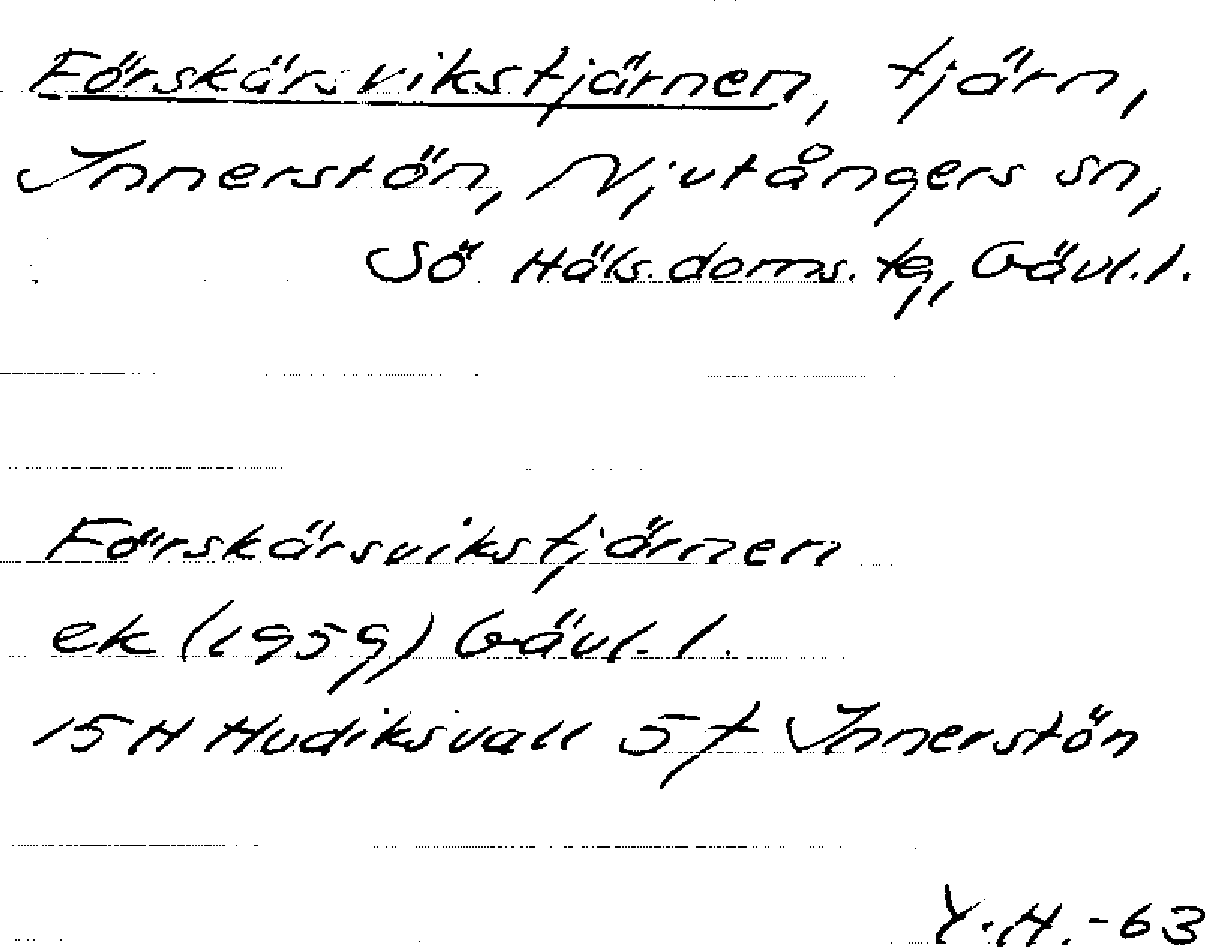 Förskärsvikstjärnen, tjärn,
Innerstön, Njutångers sn,
Sö Häls. doms. tg, Gävl. l.
Förskärsvikstjärnen
ek (1959) Gävl. l.
15 H Hudiksvall 5 f Innerstön
Y.H.-63